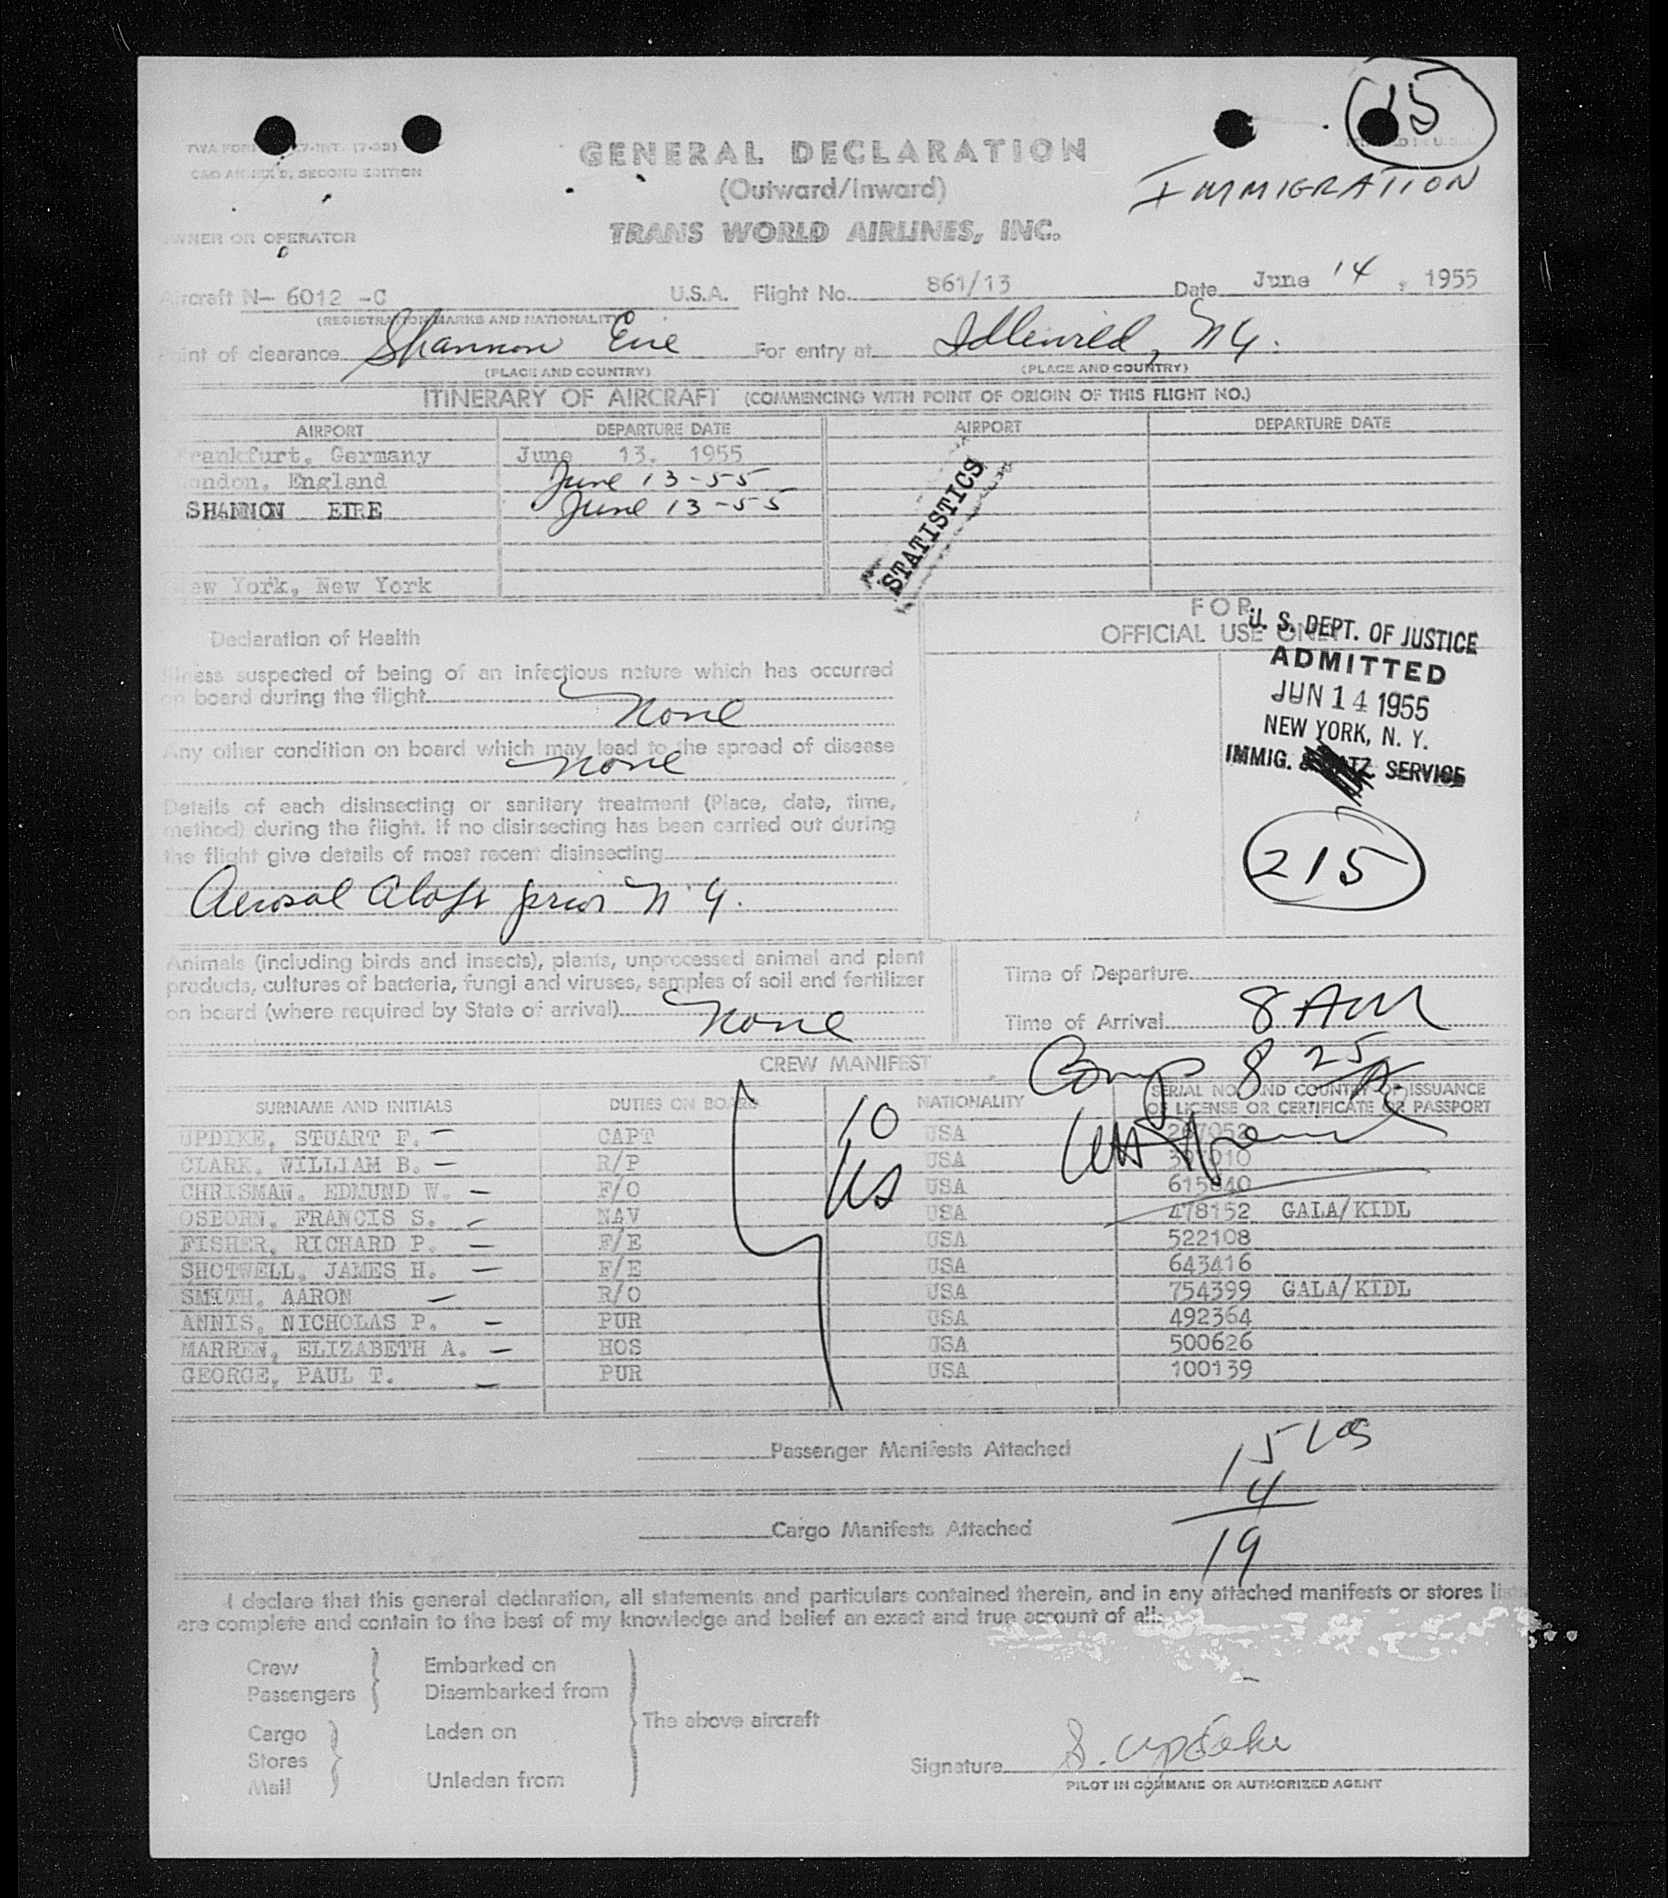 15
GENERAL DECLARATION
(Outward/Inward)
IMMIGRATION
TRANS WORLD AIRLINES, INC.
OWNER OR OPERATOR
Aircraft N- 6012 -C U.S.A. Flight No. 861/13 Date June 14, 1955
(REGISTRATION MARKS AND NATIONALITY)
Point of clearance Shannon Eire For entry at Idlewild, NY.
(PLACE AND COUNTRY) (PLACE AND COUNTRY)
ITINERARY OF AIRCRAFT (COMMENCING WITH POINT OF ORIGIN OF THIS FLIGHT NO.)
AIRPORT DEPARTURE DATE AIRPORT DEPARTURE DATE
Frankfurt, Germany June 13, 1955
London, England June 13-55
SHANNON EIRE June 13-55
STATISTICS
New York, New York
FOR
OFFICIAL USE ONLY
U. S. DEPT. OF JUSTICE
ADMITTED
JUN 14 1955
NEW YORK, N. Y.
IMMIG. & NATZ. SERVICE
215
Declaration of Health
Illness suspected of being of an infectious nature which has occurred
on board during the flight
None
Any other condition on board which may lead to the spread of disease
None
Details of each disinsecting or sanitary treatment (Place, date, time,
method) during the flight. If no disinsecting has been carried out during
the flight give details of most recent disinsecting
Aerosol Aloft prior N.Y.
Animals (including birds and insects), plants, unprocessed animal and plant
products, cultures of bacteria, fungi and viruses, samples of soil and fertilizer
on board (where required by State of arrival) None
Time of Departure
Time of Arrival 8 AM
Comp 8 25 A
CREW MANIFEST
SURNAME AND INITIALS DUTIES ON BOARD NATIONALITY SERIAL NO. AND COUNTRY OF ISSUANCE
OF LICENSE OR CERTIFICATE OR PASSPORT
10
US
UPDIKE, STUART F. CAPT USA 267052
CLARK, WILLIAM B. R/P USA
CHRISMAN, EDMUND W. F/O USA 615840
OSBORN, FRANCIS S. NAV USA 478152 GALA/KIDL
FISHER, RICHARD P. F/E USA 522108
SHOTWELL, JAMES H. F/E USA 643416
SMITH, AARON R/O USA 754399 GALA/KIDL
ANNIS, NICHOLAS P. PUR USA 492364
MARREN, ELIZABETH A. HOS USA 500626
GEORGE, PAUL T. PUR USA 100139
Passenger Manifests Attached
15 US
4
19
Cargo Manifests Attached
I declare that this general declaration, all statements and particulars contained therein, and in any attached manifests or stores lists
are complete and contain to the best of my knowledge and belief an exact and true account of all:
Crew Embarked on
Passengers Disembarked from
The above aircraft
Cargo Laden on
Stores
Mail Unladen from
Signature S. Updike
PILOT IN COMMAND OR AUTHORIZED AGENT